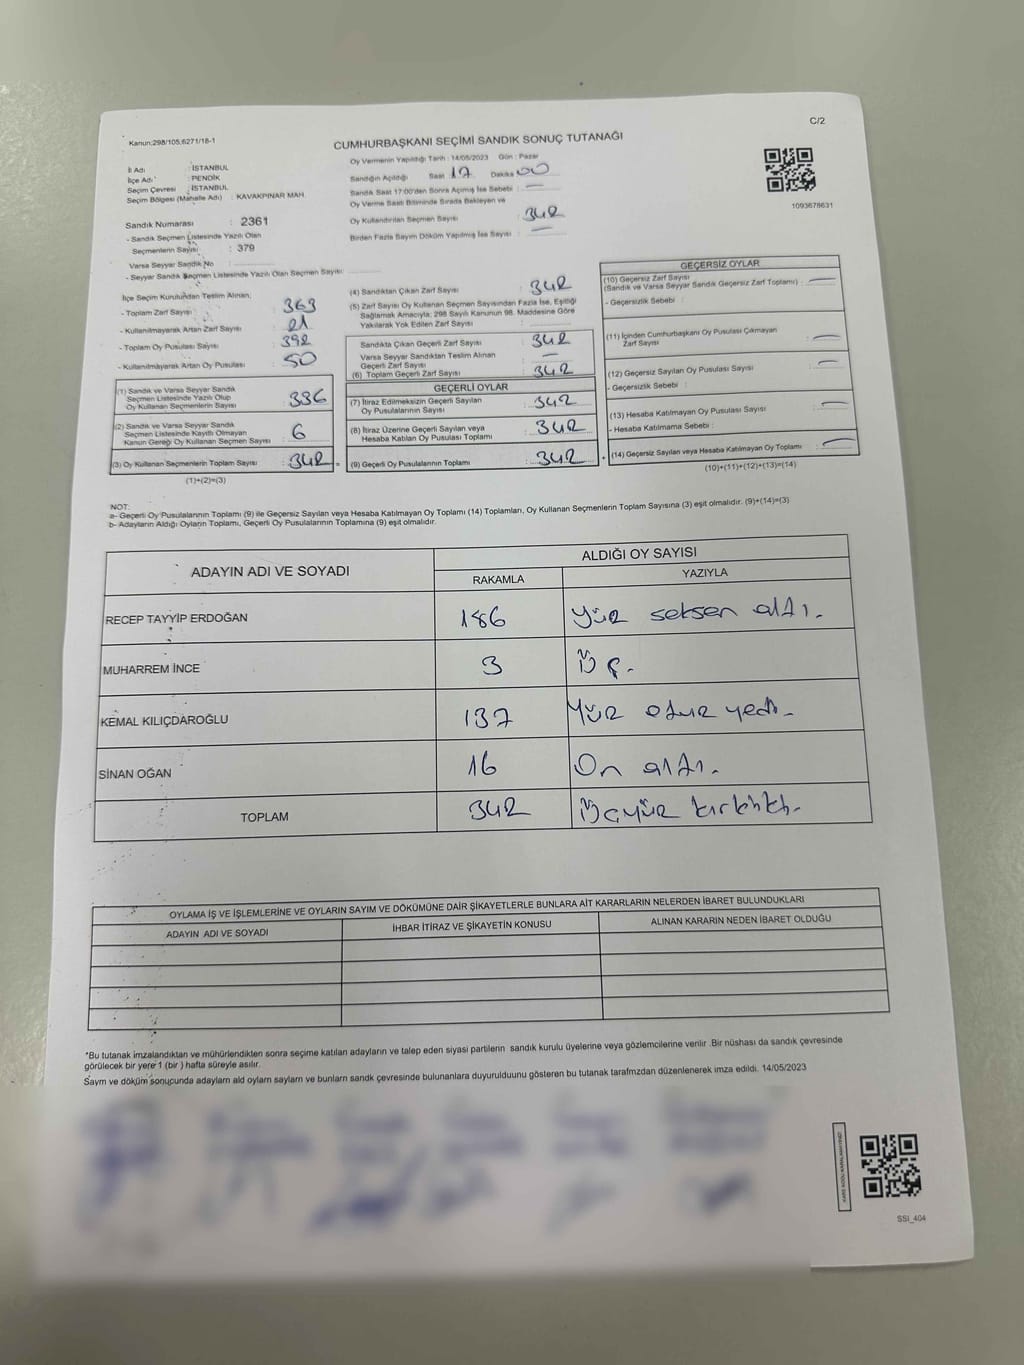 C/2
Kanun:298/105,6271/18-1
CUMHURBAŞKANI SEÇİMİ SANDIK SONUÇ TUTANAĞI
İl Adı : İSTANBUL
İlçe Adı : PENDİK
Seçim Çevresi : İSTANBUL
Seçim Bölgesi (Mahalle Adı) : KAVAKPINAR MAH.
Sandık Numarası : 2361
- Sandık Seçmen Listesinde Yazılı Olan
Seçmenlerin Sayısı : 379
Varsa Seyyar Sandık No :
- Seyyar Sandık Seçmen Listesinde Yazılı Olan Seçmen Sayısı:
Oy Vermenin Yapıldığı Tarih : 14/05/2023 Gün : Pazar
Sandığın Açıldığı Saat 17 Dakika 00
Sandık Saat 17:00'den Sonra Açılmış İse Sebebi : —
Oy Verme Saati Bitiminde Sırada Bekleyen ve
Oy Kullandırılan Seçmen Sayısı : 342
Birden Fazla Sayım Döküm Yapılmış İse Sayısı : —
1093678631
İlçe Seçim Kurulundan Teslim Alınan;
- Toplam Zarf Sayısı : 363
- Kullanılmayarak Artan Zarf Sayısı : 21
- Toplam Oy Pusulası Sayısı : 392
- Kullanılmayarak Artan Oy Pusulası : 50
(1) Sandık ve Varsa Seyyar Sandık
Seçmen Listesinde Yazılı Olup
Oy Kullanan Seçmenlerin Sayısı : 336
(2) Sandık ve Varsa Seyyar Sandık
Seçmen Listesinde Kayıtlı Olmayan
Kanun Gereği Oy Kullanan Seçmen Sayısı : 6
(3) Oy Kullanan Seçmenlerin Toplam Sayısı : 342 =
(1)+(2)=(3)
(4) Sandıktan Çıkan Zarf Sayısı : 342
(5) Zarf Sayısı Oy Kullanan Seçmen Sayısından Fazla İse, Eşitliği
Sağlamak Amacıyla; 298 Sayılı Kanunun 98. Maddesine Göre
Yakılarak Yok Edilen Zarf Sayısı :
Sandıkta Çıkan Geçerli Zarf Sayısı : 342
Varsa Seyyar Sandıktan Teslim Alınan
Geçerli Zarf Sayısı : —
(6) Toplam Geçerli Zarf Sayısı : 342
GEÇERLİ OYLAR
(7) İtiraz Edilmeksizin Geçerli Sayılan
Oy Pusulalarının Sayısı : 342
(8) İtiraz Üzerine Geçerli Sayılan veya
Hesaba Katılan Oy Pusulası Toplamı : 342
(9) Geçerli Oy Pusulalarının Toplamı : 342 +
GEÇERSİZ OYLAR
(10) Geçersiz Zarf Sayısı
(Sandık ve Varsa Seyyar Sandık Geçersiz Zarf Toplamı) : —
- Geçersizlik Sebebi :
(11) İçinden Cumhurbaşkanı Oy Pusulası Çıkmayan
Zarf Sayısı : —
(12) Geçersiz Sayılan Oy Pusulası Sayısı : —
- Geçersizlik Sebebi :
(13) Hesaba Katılmayan Oy Pusulası Sayısı : —
- Hesaba Katılmama Sebebi :
(14) Geçersiz Sayılan veya Hesaba Katılmayan Oy Toplamı : —
(10)+(11)+(12)+(13)=(14)
NOT:
a- Geçerli Oy Pusulalarının Toplamı (9) ile Geçersiz Sayılan veya Hesaba Katılmayan Oy Toplamı (14) Toplamları, Oy Kullanan Seçmenlerin Toplam Sayısına (3) eşit olmalıdır. (9)+(14)=(3)
b- Adayların Aldığı Oyların Toplamı, Geçerli Oy Pusulalarının Toplamına (9) eşit olmalıdır.
ADAYIN ADI VE SOYADI
ALDIĞI OY SAYISI
RAKAMLA YAZIYLA
RECEP TAYYİP ERDOĞAN 186 Yüz seksen altı.
MUHARREM İNCE 3 Üç.
KEMAL KILIÇDAROĞLU 137 Yüz otuz yedi.
SİNAN OĞAN 16 On altı.
TOPLAM 342 Üçyüz kırkiki.
OYLAMA İŞ VE İŞLEMLERİNE VE OYLARIN SAYIM VE DÖKÜMÜNE DAİR ŞİKAYETLERLE BUNLARA AİT KARARLARIN NELERDEN İBARET BULUNDUKLARI
ADAYIN ADI VE SOYADI İHBAR İTİRAZ VE ŞİKAYETİN KONUSU ALINAN KARARIN NEDEN İBARET OLDUĞU
*Bu tutanak imzalandıktan ve mühürlendikten sonra seçime katılan adayların ve talep eden siyasi partilerin sandık kurulu üyelerine veya gözlemcilerine verilir .Bir nüshası da sandık çevresinde
görülecek bir yere 1 (bir ) hafta süreyle asılır.
Saym ve döküm sonuçunda adaylarn ald oylarn saylarn ve bunlarn sandk çevresinde bulunanlara duyurulduunu gösteren bu tutanak tarafmzdan düzenlenerek imza edildi. 14/05/2023
SSI_404